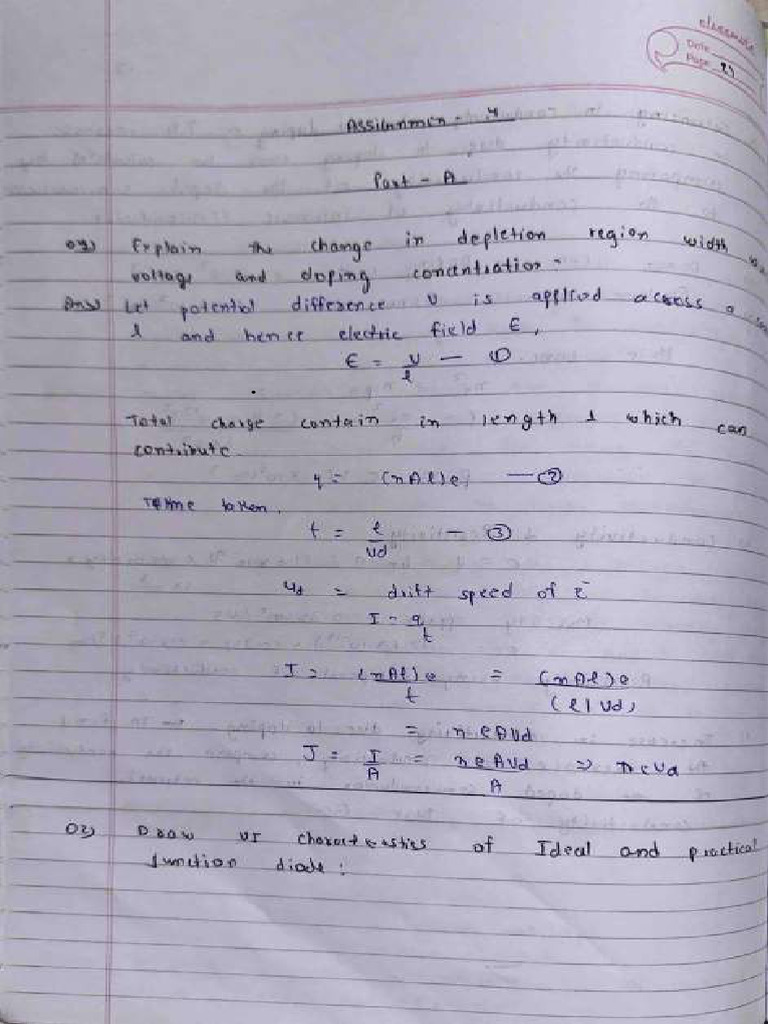 classmate
Date
Page 24
Assignmen - 4
Part - A
Q1) Explain the change in depletion region width
voltage and doping concentration -
Ans) Let potential difference V is applied across a
l and hence electric field E,
E = V/l — ①
Total charge contain in length l which can
contribute
q = (nAl)e — ②
Time taken,
t = l/vd — ③
vd = drift speed of e⁻
I = q/t
I = (nAl)e/t = (nAl)e/(l/vd)
= neAvd
J = I/A = neAvd/A ⇒ nevd
Q2) Draw VI characteristics of Ideal and practical
Junction diode :